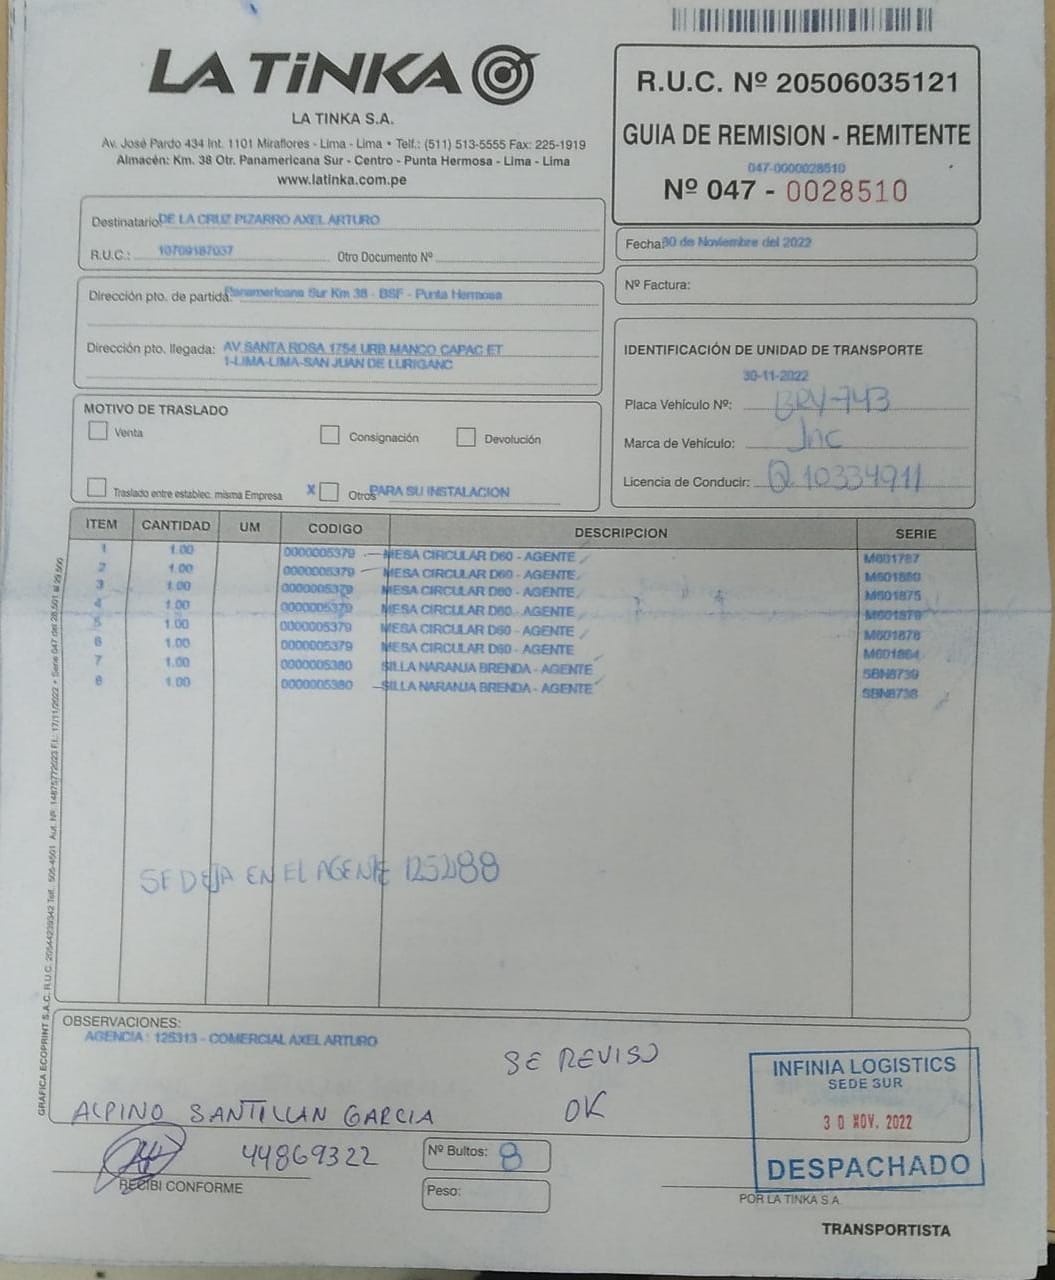 LA TiNKA
LA TINKA S.A.
Av. José Pardo 434 Int. 1101 Miraflores - Lima - Lima • Telf.: (511) 513-5555 Fax: 225-1919
Almacén: Km. 38 Otr. Panamericana Sur - Centro - Punta Hermosa - Lima - Lima
www.latinka.com.pe
R.U.C. Nº 20506035121
GUIA DE REMISION - REMITENTE
047-0000028510
Nº 047 - 0028510
Destinatario DE LA CRUZ PIZARRO AXEL ARTURO
R.U.C.: 10709187037 Otro Documento Nº
Fecha: 30 de Noviembre del 2022
Nº Factura:
Dirección pto. de partida: Panamericana Sur Km 38 - BSF - Punta Hermosa
Dirección pto. llegada: AV SANTA ROSA 1754 URB MANCO CAPAC ET
1-LIMA-LIMA-SAN JUAN DE LURIGANC
IDENTIFICACIÓN DE UNIDAD DE TRANSPORTE
30-11-2022
Placa Vehículo Nº: BRY-743
Marca de Vehículo: Jnc
Licencia de Conducir: Q10334911
MOTIVO DE TRASLADO
Venta Consignación Devolución
Traslado entre establec. misma Empresa X Otros PARA SU INSTALACION
ITEM CANTIDAD UM CODIGO DESCRIPCION SERIE
1 1.00 0000005379 MESA CIRCULAR D60 - AGENTE M601787
2 1.00 0000005379 MESA CIRCULAR D60 - AGENTE M601880
3 1.00 0000005379 MESA CIRCULAR D60 - AGENTE M601875
4 1.00 0000005379 MESA CIRCULAR D60 - AGENTE M601879
5 1.00 0000005379 MESA CIRCULAR D60 - AGENTE M601876
6 1.00 0000005379 MESA CIRCULAR D60 - AGENTE M601864
7 1.00 0000005380 SILLA NARANJA BRENDA - AGENTE SBN8739
8 1.00 0000005380 SILLA NARANJA BRENDA - AGENTE SBN8738
SE DEJA EN EL AGENTE 125288
GRAFICA ECOPRINT S.A.C. R.U.C. 20544239342 Telf. 505-4501 Aut. Nº 14875772023 F.I.: 17/11/2022 • Serie 047 del 28,501 al 29,500
OBSERVACIONES:
AGENCIA : 125313 - COMERCIAL AXEL ARTURO
SE REVISO
OK
ALPINO SANTILLAN GARCIA
44869322
RECIBI CONFORME
Nº Bultos: 8
Peso:
INFINIA LOGISTICS
SEDE SUR
30 NOV. 2022
DESPACHADO
POR LA TINKA S.A.
TRANSPORTISTA